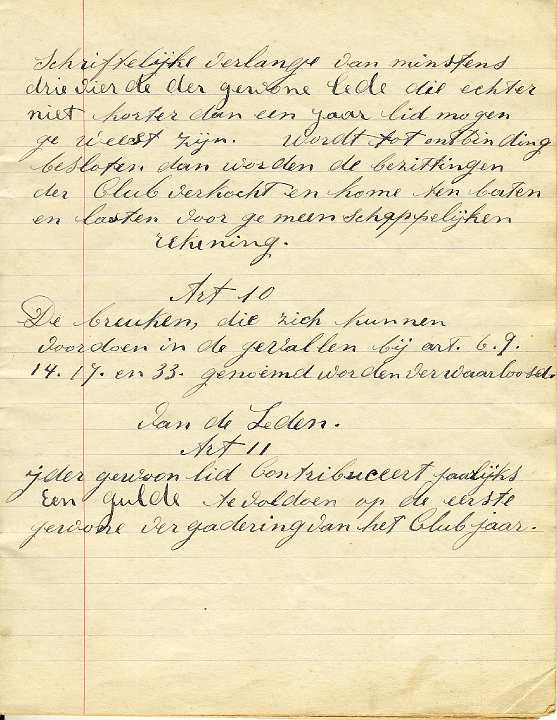 Schriftelijke verlange van minstens
drievierde der gewone lede die echter
niet korter dan een jaar lid mogen
geweest zijn. Wordt tot ontbinding
besloten dan worden de bezittingen
der Club verkocht en kome ten baten
en lasten voor gemeenschappelijken
rekening.
Art 10
De breuken, die zich kunnen
voordoen in de gevallen bij art. 6. 9.
14. 17. en 33. genoemd worden verwaarloosd.
Van de Leden.
Art 11
ijder gewoon lid Contribuceert jaarlijks
een gulde te voldoen op de eerste
gewone vergadering van het Clubjaar.